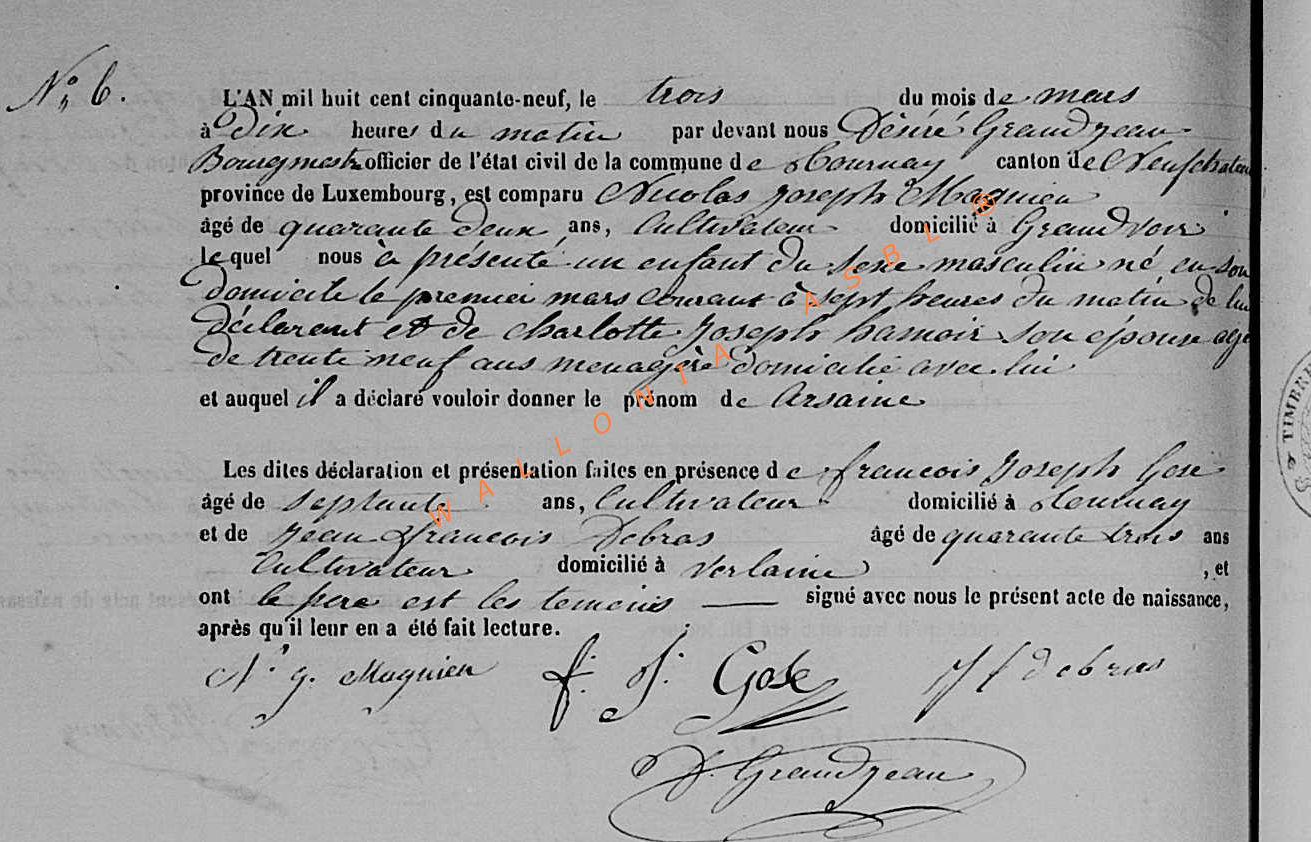 N° 6.
L'AN mil huit cent cinquante-neuf, le trois du mois de mars
à Dix heures du matin par devant nous Désiré Grandjean
Bourgmestre officier de l'état civil de la commune de Tournay canton de Neufchateau
province de Luxembourg, est comparu Nicolas Joseph Magnien
âgé de quarante deux ans, Cultivateur domicilié à Grandvoir
lequel nous à présenté un enfant du sexe masculin né en son
domicile le premier mars courant à sept heures du matin de lui
déclarent et de Charlotte Joseph hamoir son épouse age
de trente neuf ans menagère domicilié avec lui
et auquel il a déclaré vouloir donner le prénom de Arsaine
Les dites déclaration et présentation faites en présence de francois Joseph Gose
âgé de septante ans, Cultivateur domicilié à Tournay
et de Jean francois Debras âgé de quarante trois ans
Cultivateur domicilié à Verlaine, et
ont le pere est les temoins — signé avec nous le présent acte de naissance,
après qu'il leur en a été fait lecture.
N. J. Magnien f. J. Gose J f debras
D. Grandjean
WALLONIA ASBL ®
TIMBRE